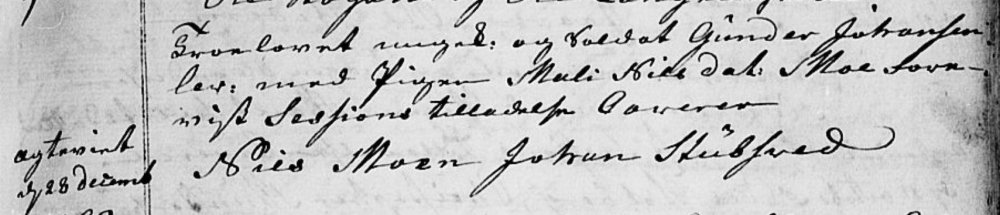 Troelovet ungk: og Soldat Gunder Johansen
ler: med Pigen Mali Nielsdat: Moe fore-
vist Sessions tilladelse Caverer
Niels Moen Johan Stübsved
agteviet
d 28 decemb